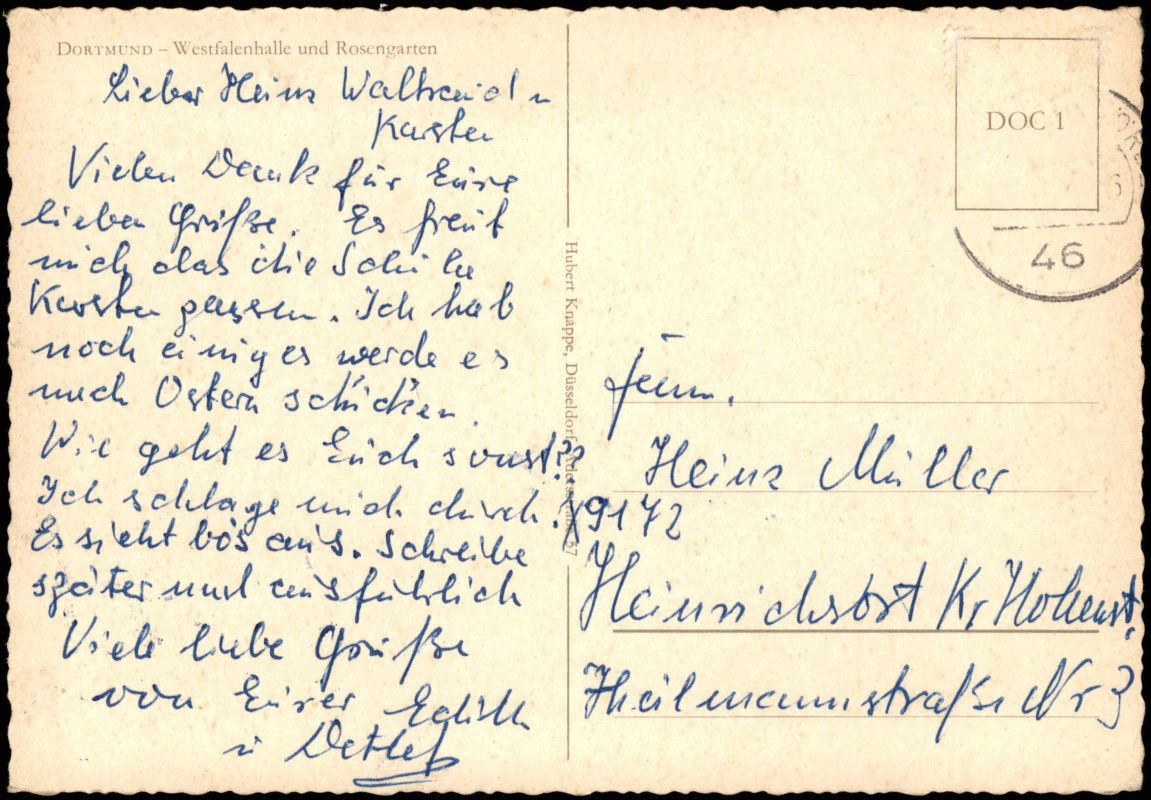 DORTMUND – Westfalenhalle und Rosengarten
Lieber Heinz Waltraud u
Karsten
Vielen Dank für Eure
lieben Grüße. Es freut
mich das die Schuhe
Karsten passen. Ich hab
noch einiges werde es
nach Ostern schicken.
Wie geht es Euch sonst??
Ich schlage mich durch.
Es sieht bös aus. Schreibe
später mal ausführlich
Viele liebe Grüße
von Eurer Edith
u Detlef
Hubert Knappe, Düsseldorf, 57
DOC 1
46
Fam.
Heinz Müller
9172
Heinrichsort Kr Hohenst.
Heilmannstraße Nr 3